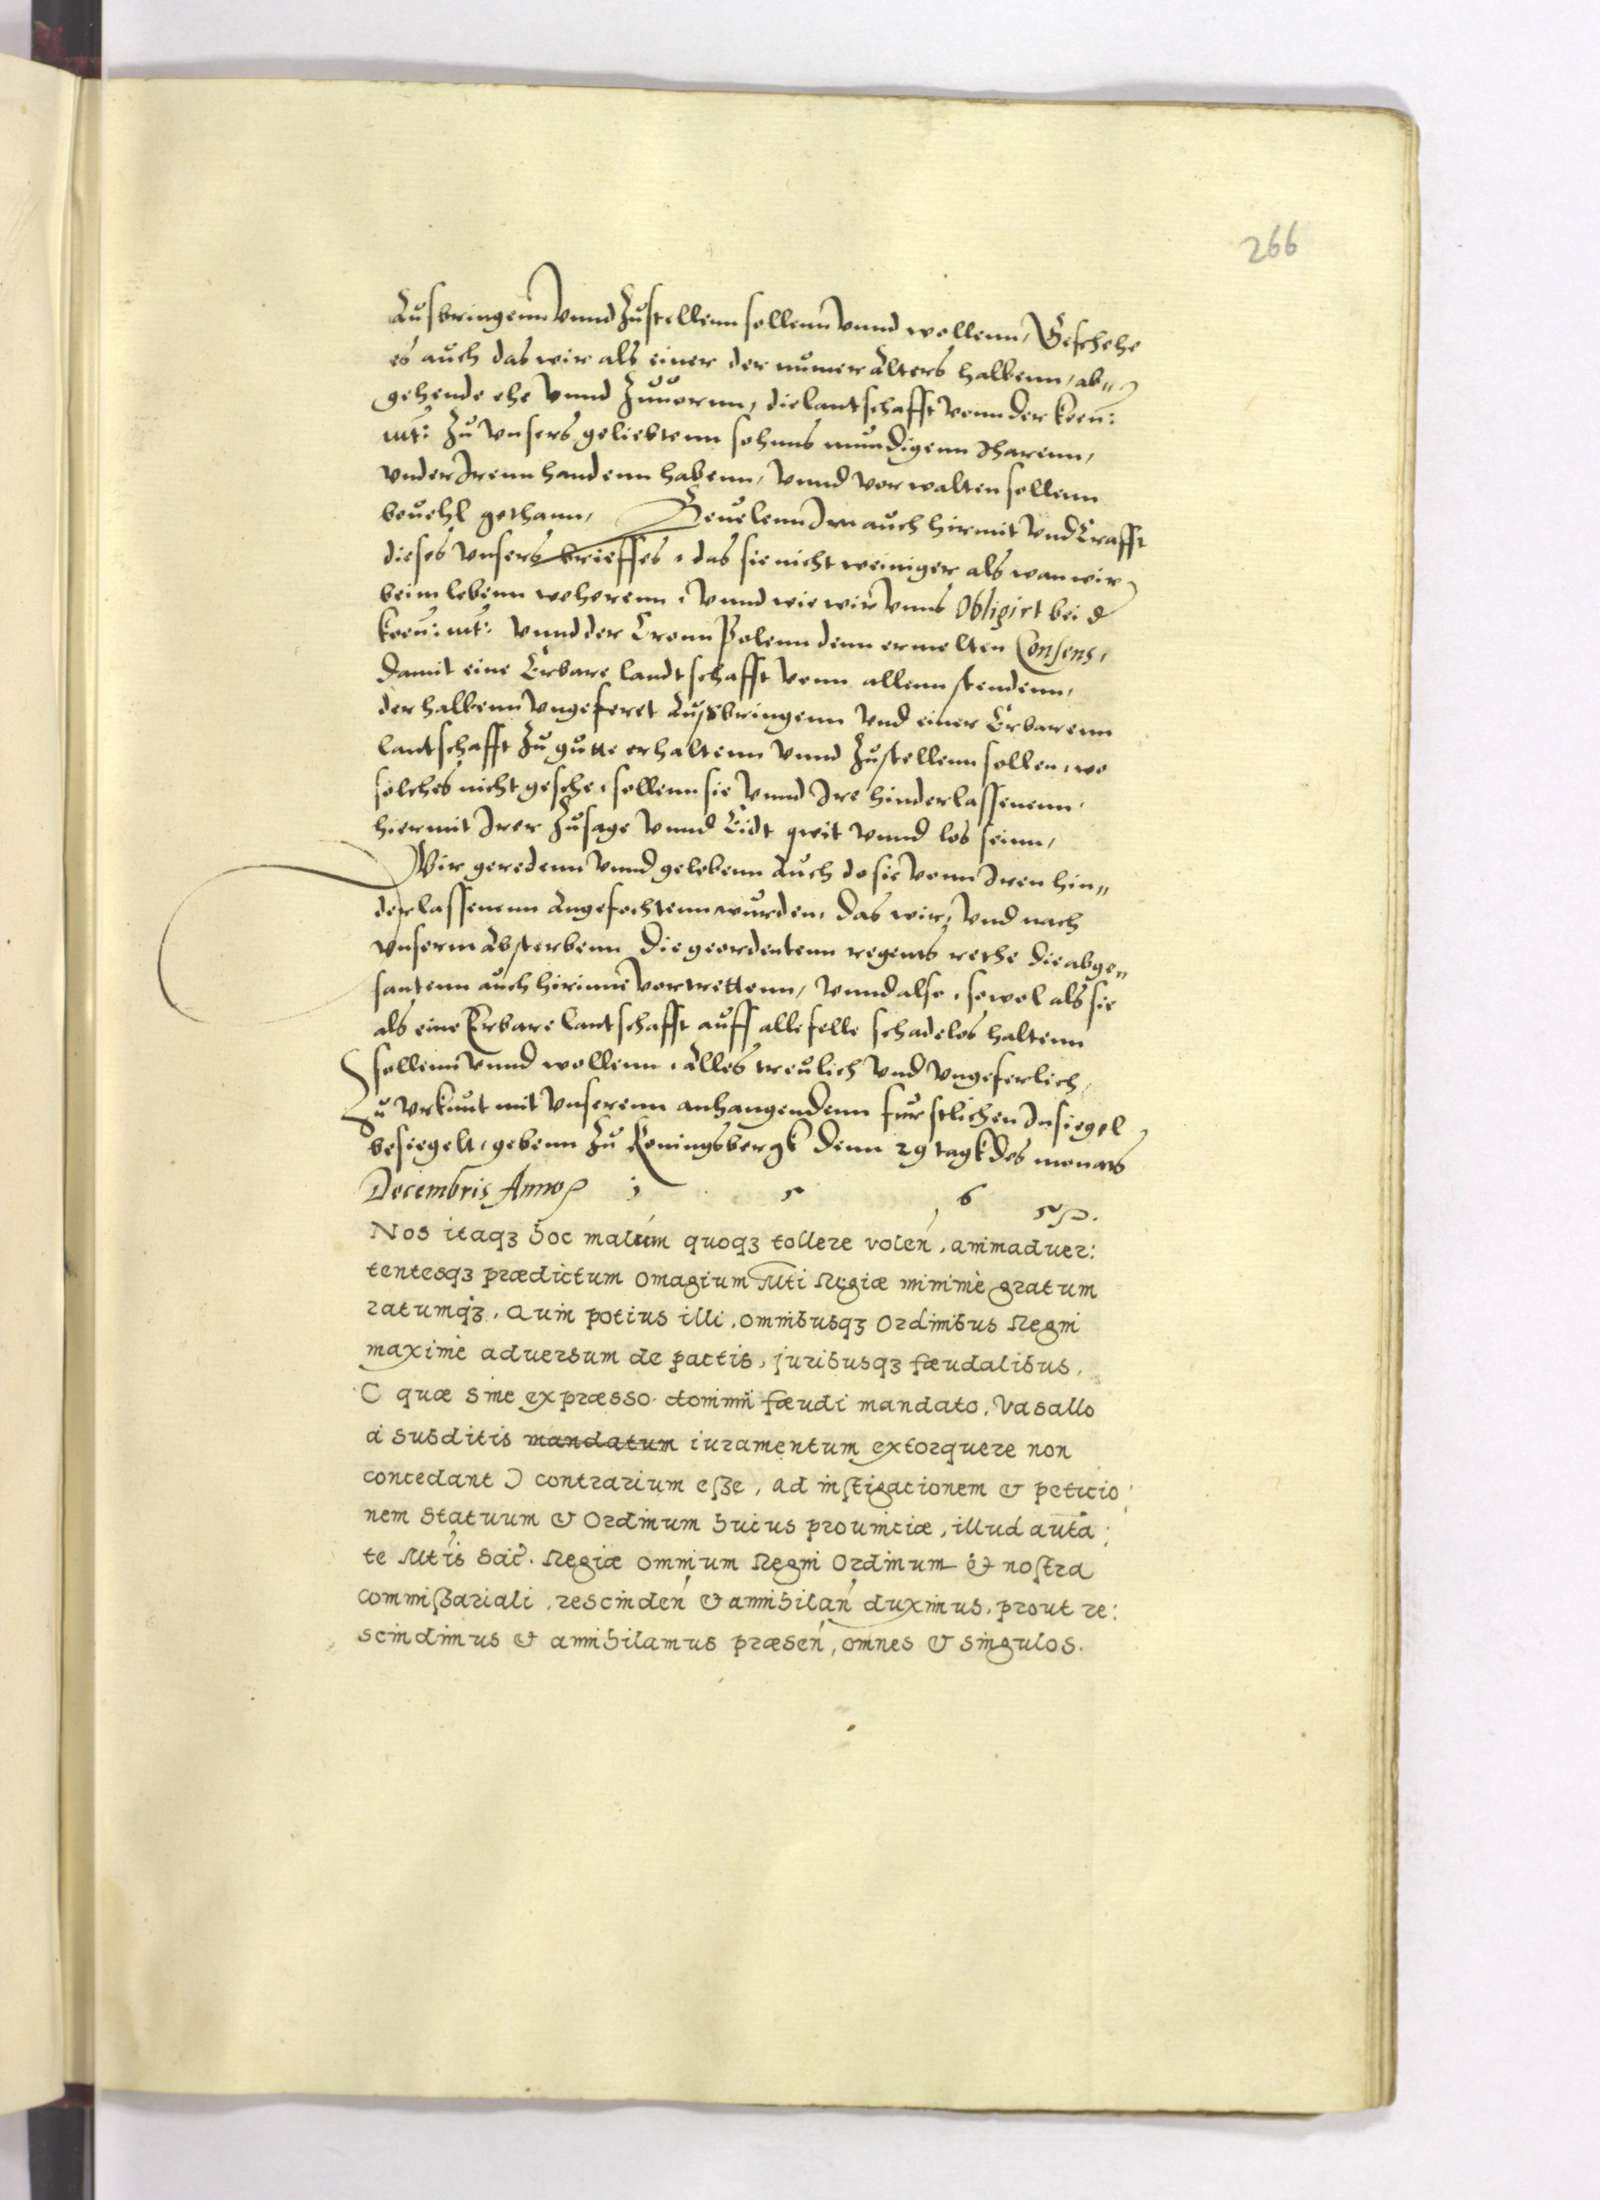 266
Ausbringenn vnnd Zustellenn sollenn vnnd wollenn, Geschehe
es auch das wir als einer der numer Alters halbenn, ab„
gehende ehe vnnd Zuuornn, die lantschafft vonn der koen:
mt: Zu vnsers geliebtenn sohnns mundigenn Jharenn,
vnder Irenn handenn habenn, vnnd vorwalten sollenn
beuehl gethann, Beuelenn Irn auch hirmit vnd Crafft
dieses vnsers brieffes, das sie nicht weiniger als wan wir
beim lebenn wherenn, vnnd wie wir vnns Obligirt bei d
koen: mt: vnnd der Cronn Polenn denn ermelten Consens,
damit eine Erbare landtschafft vonn allenn stendenn,
derhalbenn vngeferet Außbringenn vnd einer Erbarenn
lantschafft Zu gutte erhaltenn vnnd Zustellenn sollen, wo
solches nicht gesche, sollenn sie vnnd Ire hinderlassenenn,
hiermit Irer Zusage vnnd Eidt qweit vnnd los seinn,
Wir geredenn vnnd gelobenn Auch do sie vonn Iren hin„
derlassenenn Angefochtenn wurden, das wir, vnd nach
vnserm Absterbenn die geordentenn regents rethe die abge„
santenn auch hirinne vortrettenn, vnnd also, sowol als sie
als eine Erbare lantschafft auff alle felle schadelos haltenn
sollenn vnnd wollenn, Alles treulich vnd vngeferlich,
Zu vrkunt mit vnserenn anhangendenn furstlichen Insiegel
besiegelt, gebenn Zu Koningsbergk denn 29 tagk des monats
Decembris Anno 1 5 6 5.
Nos itaqꝫ hoc malum quoqꝫ tollere volen, animaduer:
tentesqꝫ prædictum omagium Mti Regiæ minimè gratum
ratumqꝫ, Quin potius illi, omnibusqꝫ Ordinibus Regni
maximè aduersum de pactis, juribusqꝫ fæudalibus,
C quæ sine expræsso domini fæudi mandato, Vasallo
à subditis mandatum iuramentum extorquere non
concedant Ɔ contrarium eße, ad instigacionem & peticio:
nem Statuum & Ordinum huius prouinciæ, illud auta:
te Mtis Sac. Regiæ omnium Regni Ordinum & nostra
commißariali, rescinden & annihilan duximus, prout re:
scindimus & annihilamus præsen, omnes & singulos.